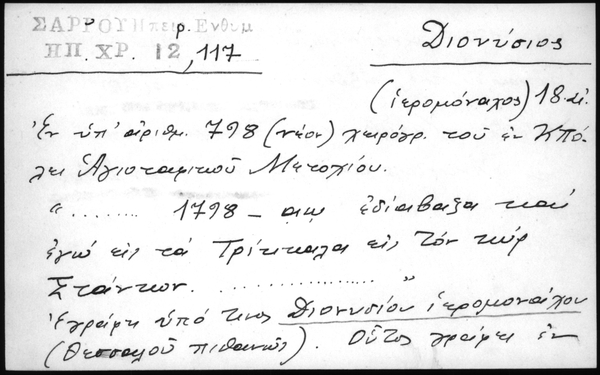 ΣΑΡΡΟΥ Ηπειρ. Ενθυμ
ΗΠ. ΧΡ. 12, 117
Διονύσιος
(ἱερομόναχος) 18. αἰ.
Ἐν ὑπ' ἀριθμ. 798 (νέον) χειρόγρ. τοῦ ἐν Κπό-
λει Ἁγιοταφιτικοῦ Μετοχίου.
"........ 1798 – ἐδιάβαζα καὶ
ἐγώ εἰς τὰ Τρίκκαλα εἰς τὸν κὺρ
Στάντζον. .................. "
Ἐγράφη ὑπό τινος Διονυσίου ἱερομονάχου
(Θεσσαλοῦ πιθανῶς). Οὗτος γράφει ἐν